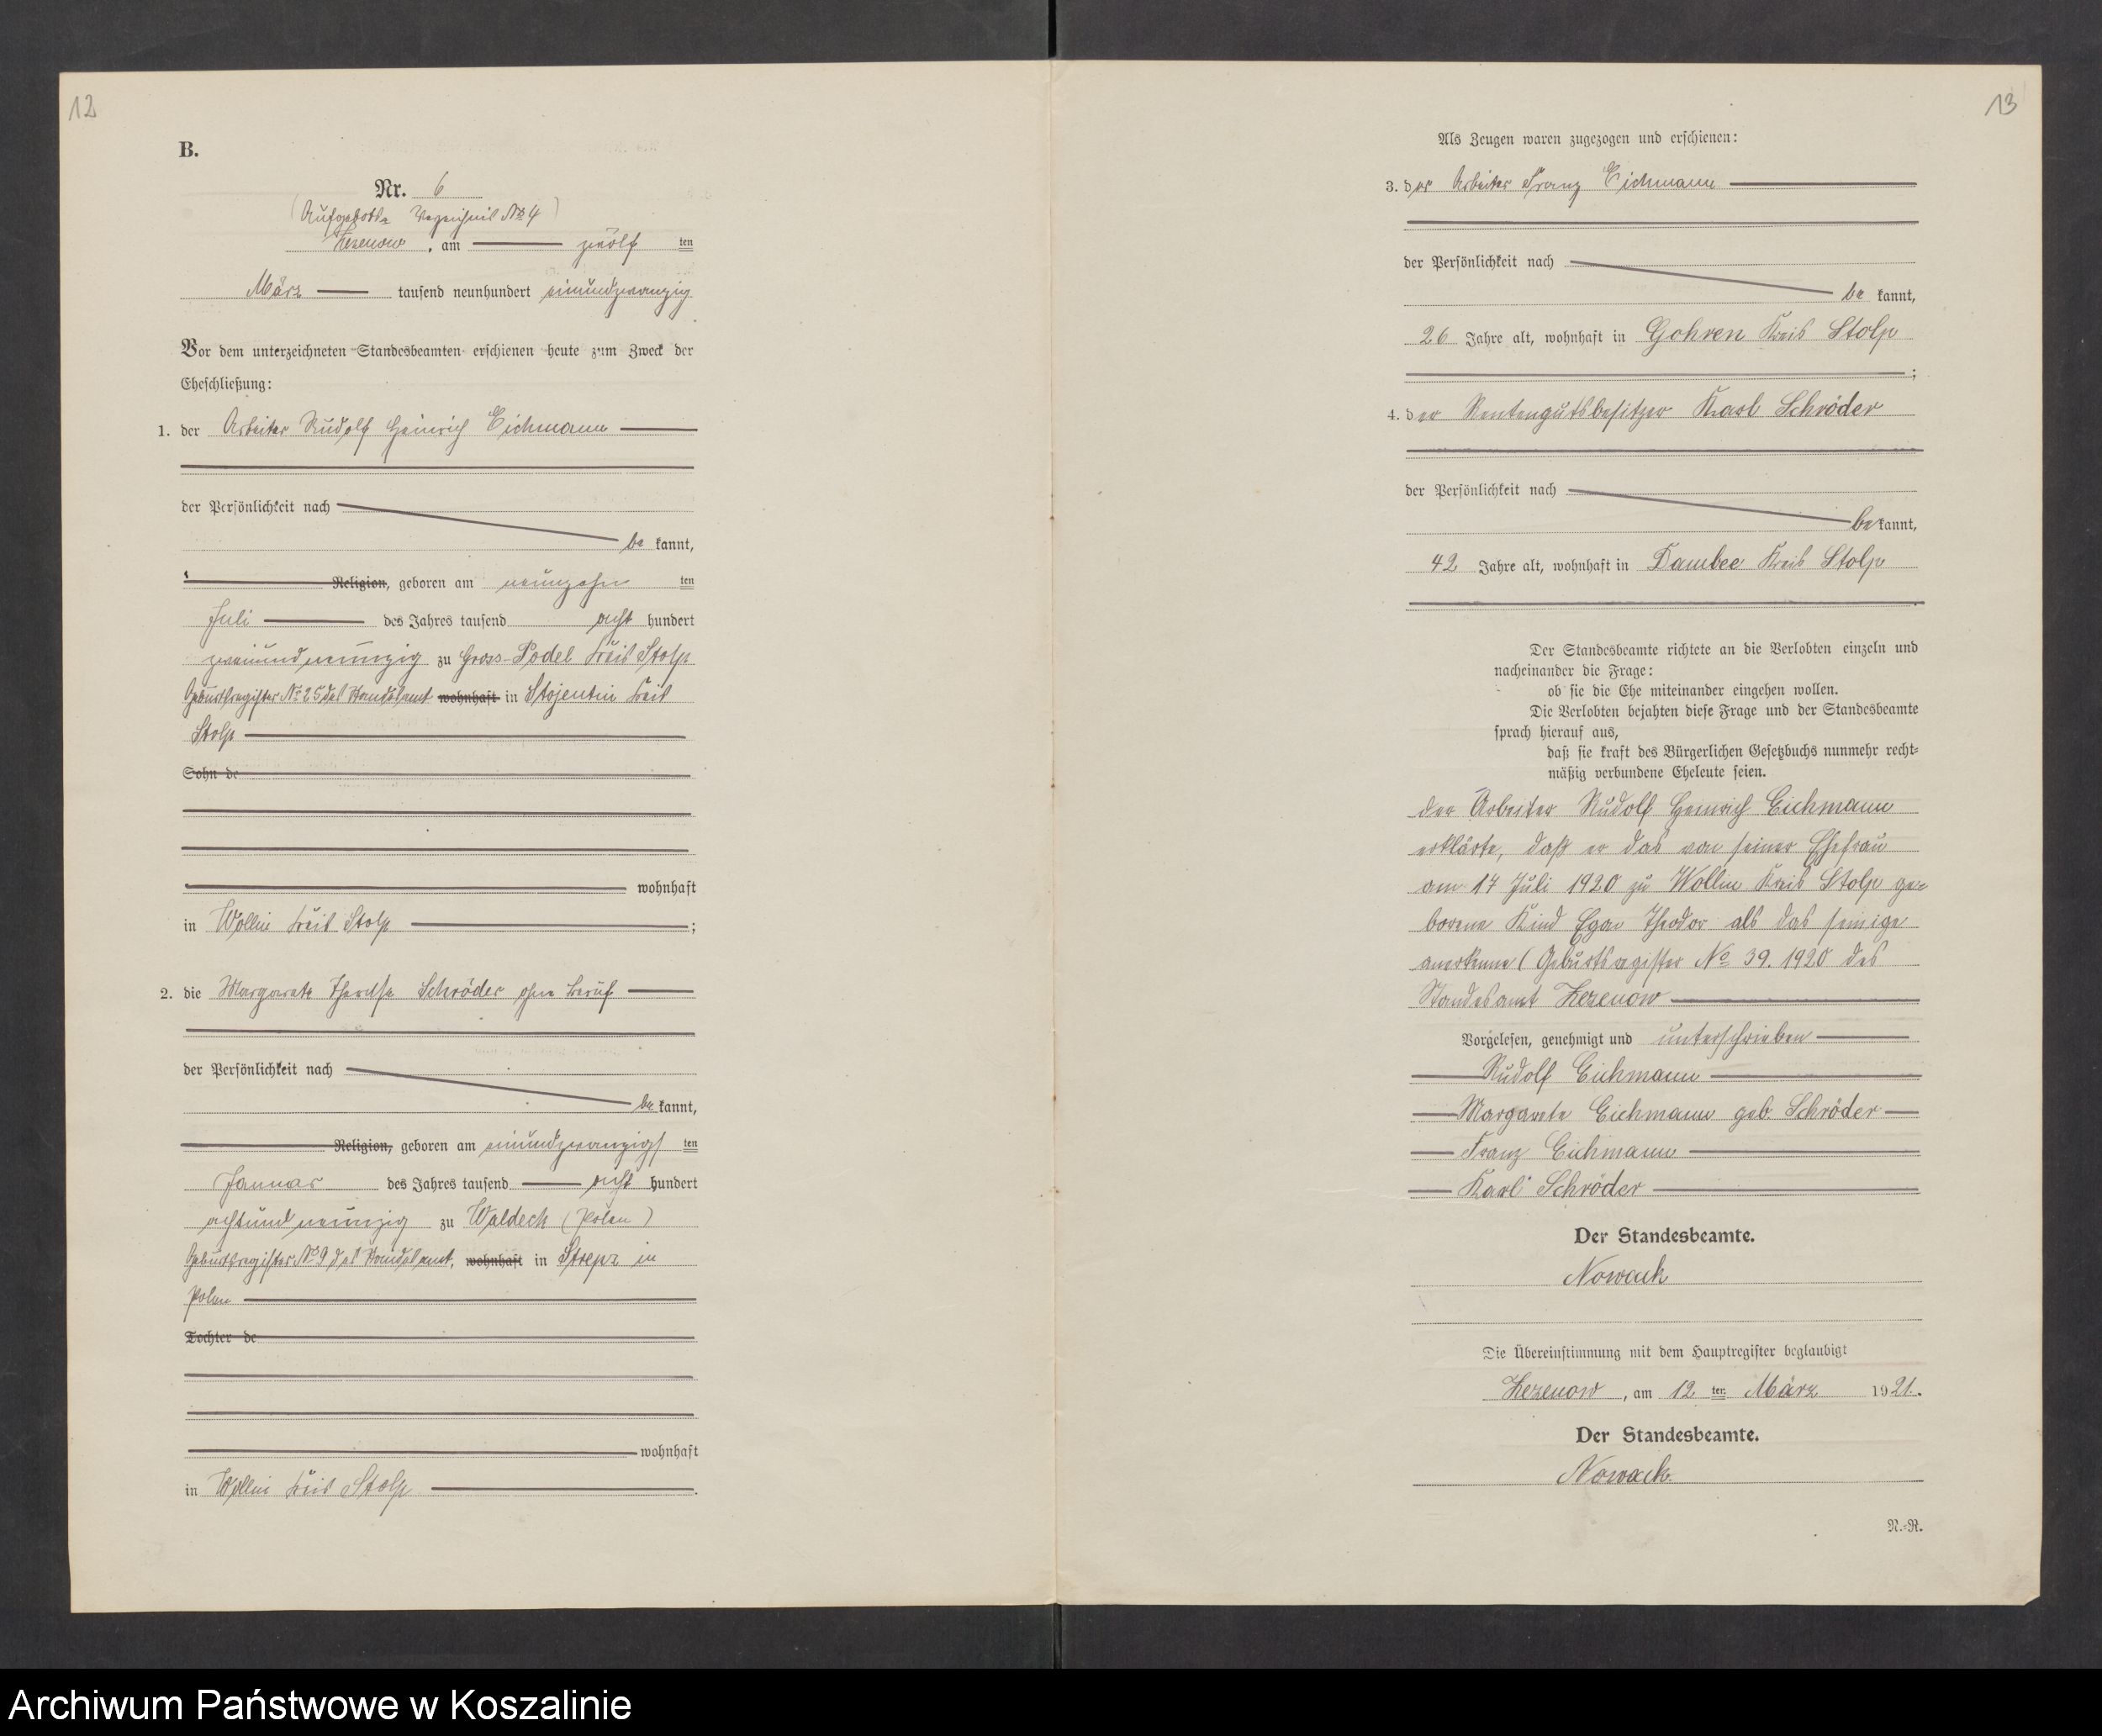 12
B.
Nr. 6
(Aufgebots Verzeichnis No 4)
Zezenow, am zwölf ten
März tausend neunhundert einundzwanzig
Vor dem unterzeichneten Standesbeamten erschienen heute zum Zweck der
Eheschließung:
1. der Arbeiter Rudolf Heinrich Eichmann
der Persönlichkeit nach
be kannt,
Religion, geboren am neunzehn ten
Juli des Jahres tausend acht hundert
zweiundneunzig zu Gross-Podel Kreis Stolp
Geburtsregister No 25 des Standesamt wohnhaft in Stojentin Kreis
Stolp
Sohn de
wohnhaft
in Wollin Kreis Stolp ;
2. die Margarete Therese Schröder ohne Beruf
der Persönlichkeit nach
be kannt,
Religion, geboren am einundzwanzigst ten
Januar des Jahres tausend acht hundert
achtundneunzig zu Waldeck (Polen)
Geburtsregister No 9 des Standesamt, wohnhaft in Strepz in
Polen
Tochter de
wohnhaft
in Wollin Kreis Stolp .
13
Als Zeugen waren zugezogen und erschienen:
3. der Arbeiter Franz Eichmann
der Persönlichkeit nach
be kannt,
26 Jahre alt, wohnhaft in Gohren Kreis Stolp
;
4. der Rentengutsbesitzer Karl Schröder
der Persönlichkeit nach
be kannt,
42 Jahre alt, wohnhaft in Dambee Kreis Stolp
.
Der Standesbeamte richtete an die Verlobten einzeln und
nacheinander die Frage:
ob sie die Ehe miteinander eingehen wollen.
Die Verlobten bejahten diese Frage und der Standesbeamte
sprach hierauf aus,
daß sie kraft des Bürgerlichen Gesetzbuchs nunmehr recht-
mäßig verbundene Eheleute seien.
der Arbeiter Rudolf Heinrich Eichmann
erklärte, daß er das von seiner Ehefrau
am 17 Juli 1920 zu Wollin Kreis Stolp ge-
borene Kind Egon Theodor als das seinige
anerkenne (Geburtsregister No 39. 1920 des
Standesamt Zezenow
Vorgelesen, genehmigt und unterschrieben
Rudolf Eichmann
Margarete Eichmann geb. Schröder
Franz Eichmann
Karl Schröder
Der Standesbeamte.
Nowack
Die Übereinstimmung mit dem Hauptregister beglaubigt
Zezenow, am 12 ten März 1921.
Der Standesbeamte.
Nowack.
N.-R.
Archiwum Państwowe w Koszalinie